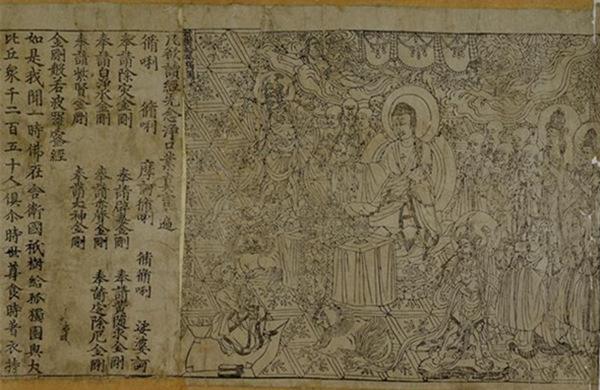 凡欲讀經先念淨口業真言一遍
脩唎 脩唎 摩訶脩唎 脩脩唎 娑婆訶
奉請除灾金剛 奉請辟毒金剛 奉請黃隨求金剛
奉請白淨水金剛 奉請赤聲金剛 奉請定除厄金剛
奉請紫賢金剛 奉請大神金剛
金剛般若波羅蜜經
如是我聞一時佛在舍衛國祇樹給孤獨園與大
比丘衆千二百五十人俱尒時世尊食時著衣持